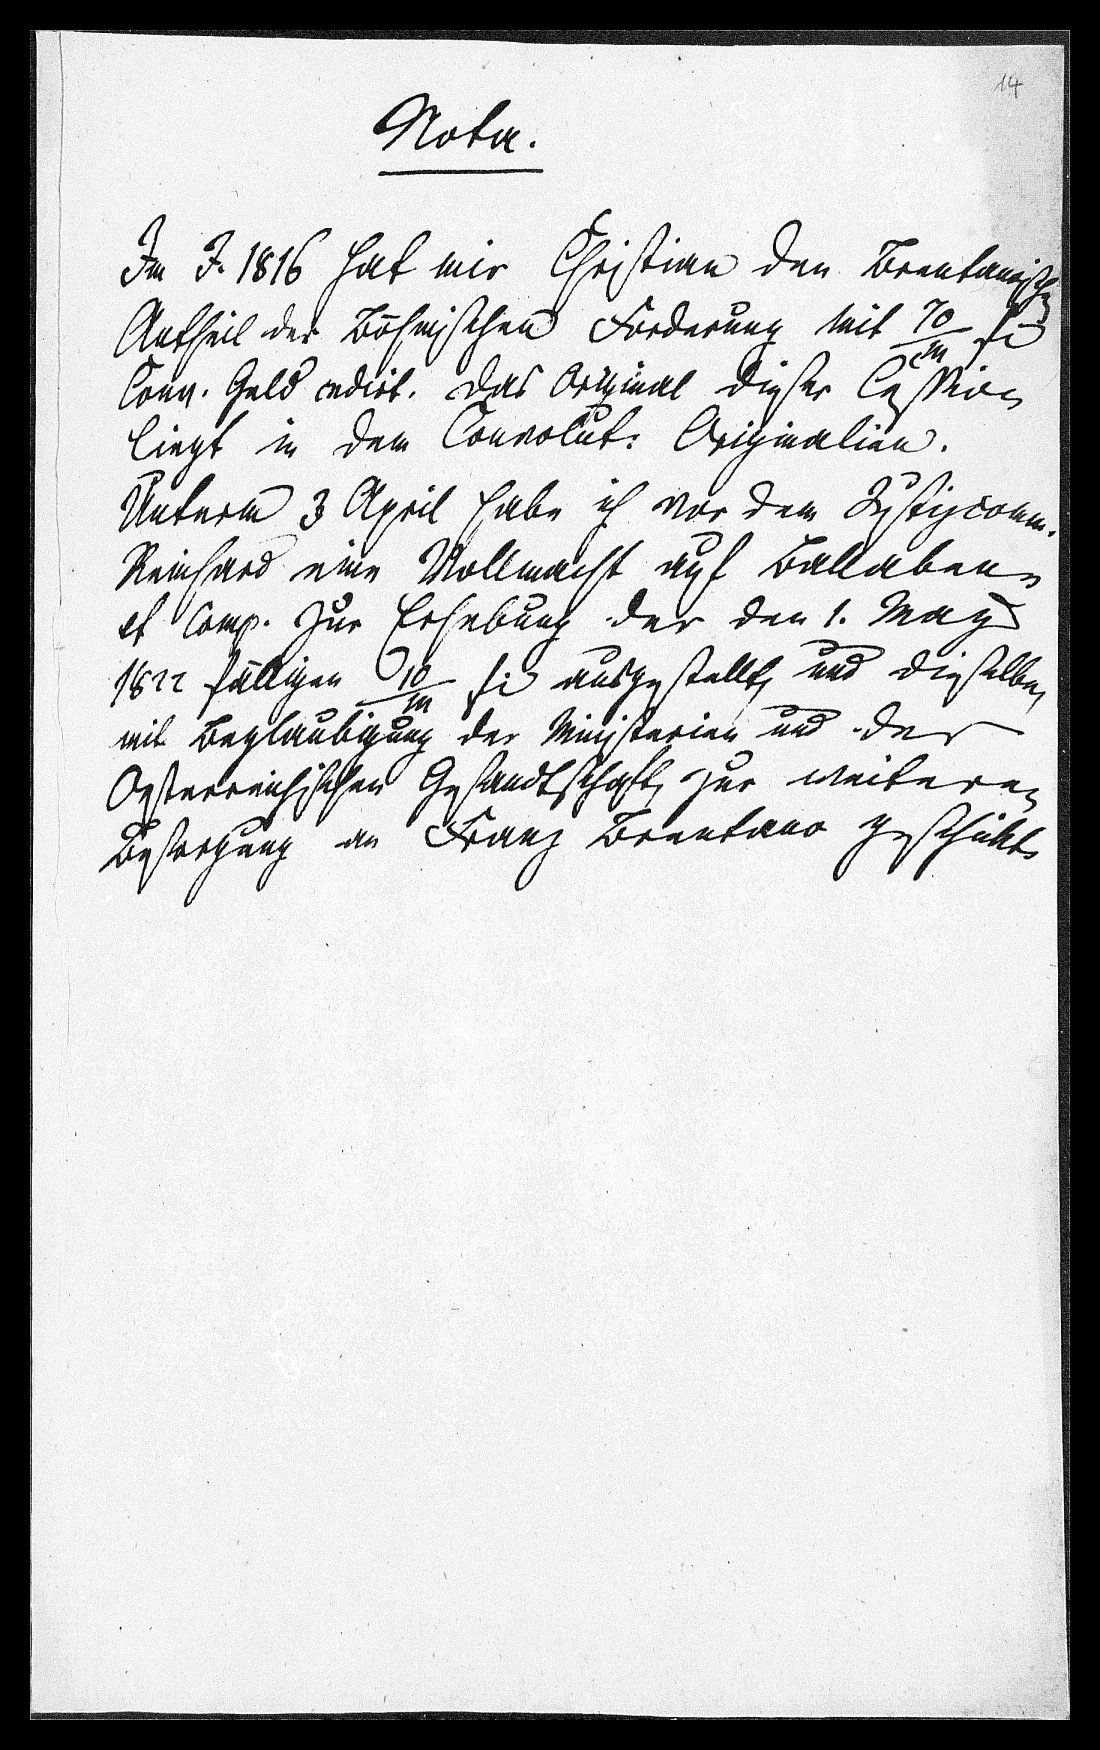 14
Nota.
Im J. 1816 hat mir Christian den Brentanoischen
Antheil der Böhmischen Forderung mit 70/m fl
Conv. Geld cedirt. Das Original dieser Cession
liegt in dem Convolut: Originalien.
Unterm 3 April habe ich vor dem Justizcomm.
Reinhard eine Vollmacht auf Ballabene
et Comp. zur Erhebung der den 1. May
1822 fälligen 10/m fl ausgestellt, und dieselbe,
mit Beglaubigung der Ministerien und der
Oesterreichischen Gesandtschaft, zur weiteren
Besorgung an Franz Brentano geschickt.